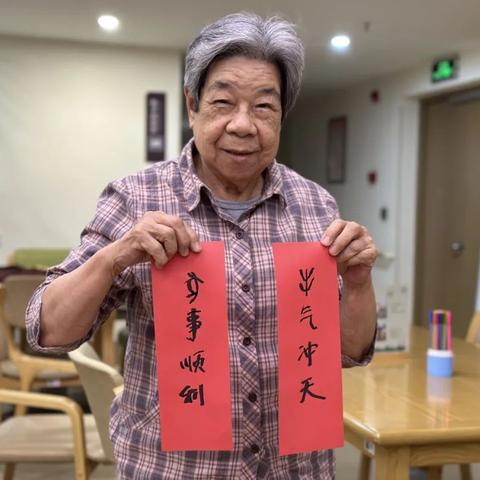 事顺利
牛气冲天